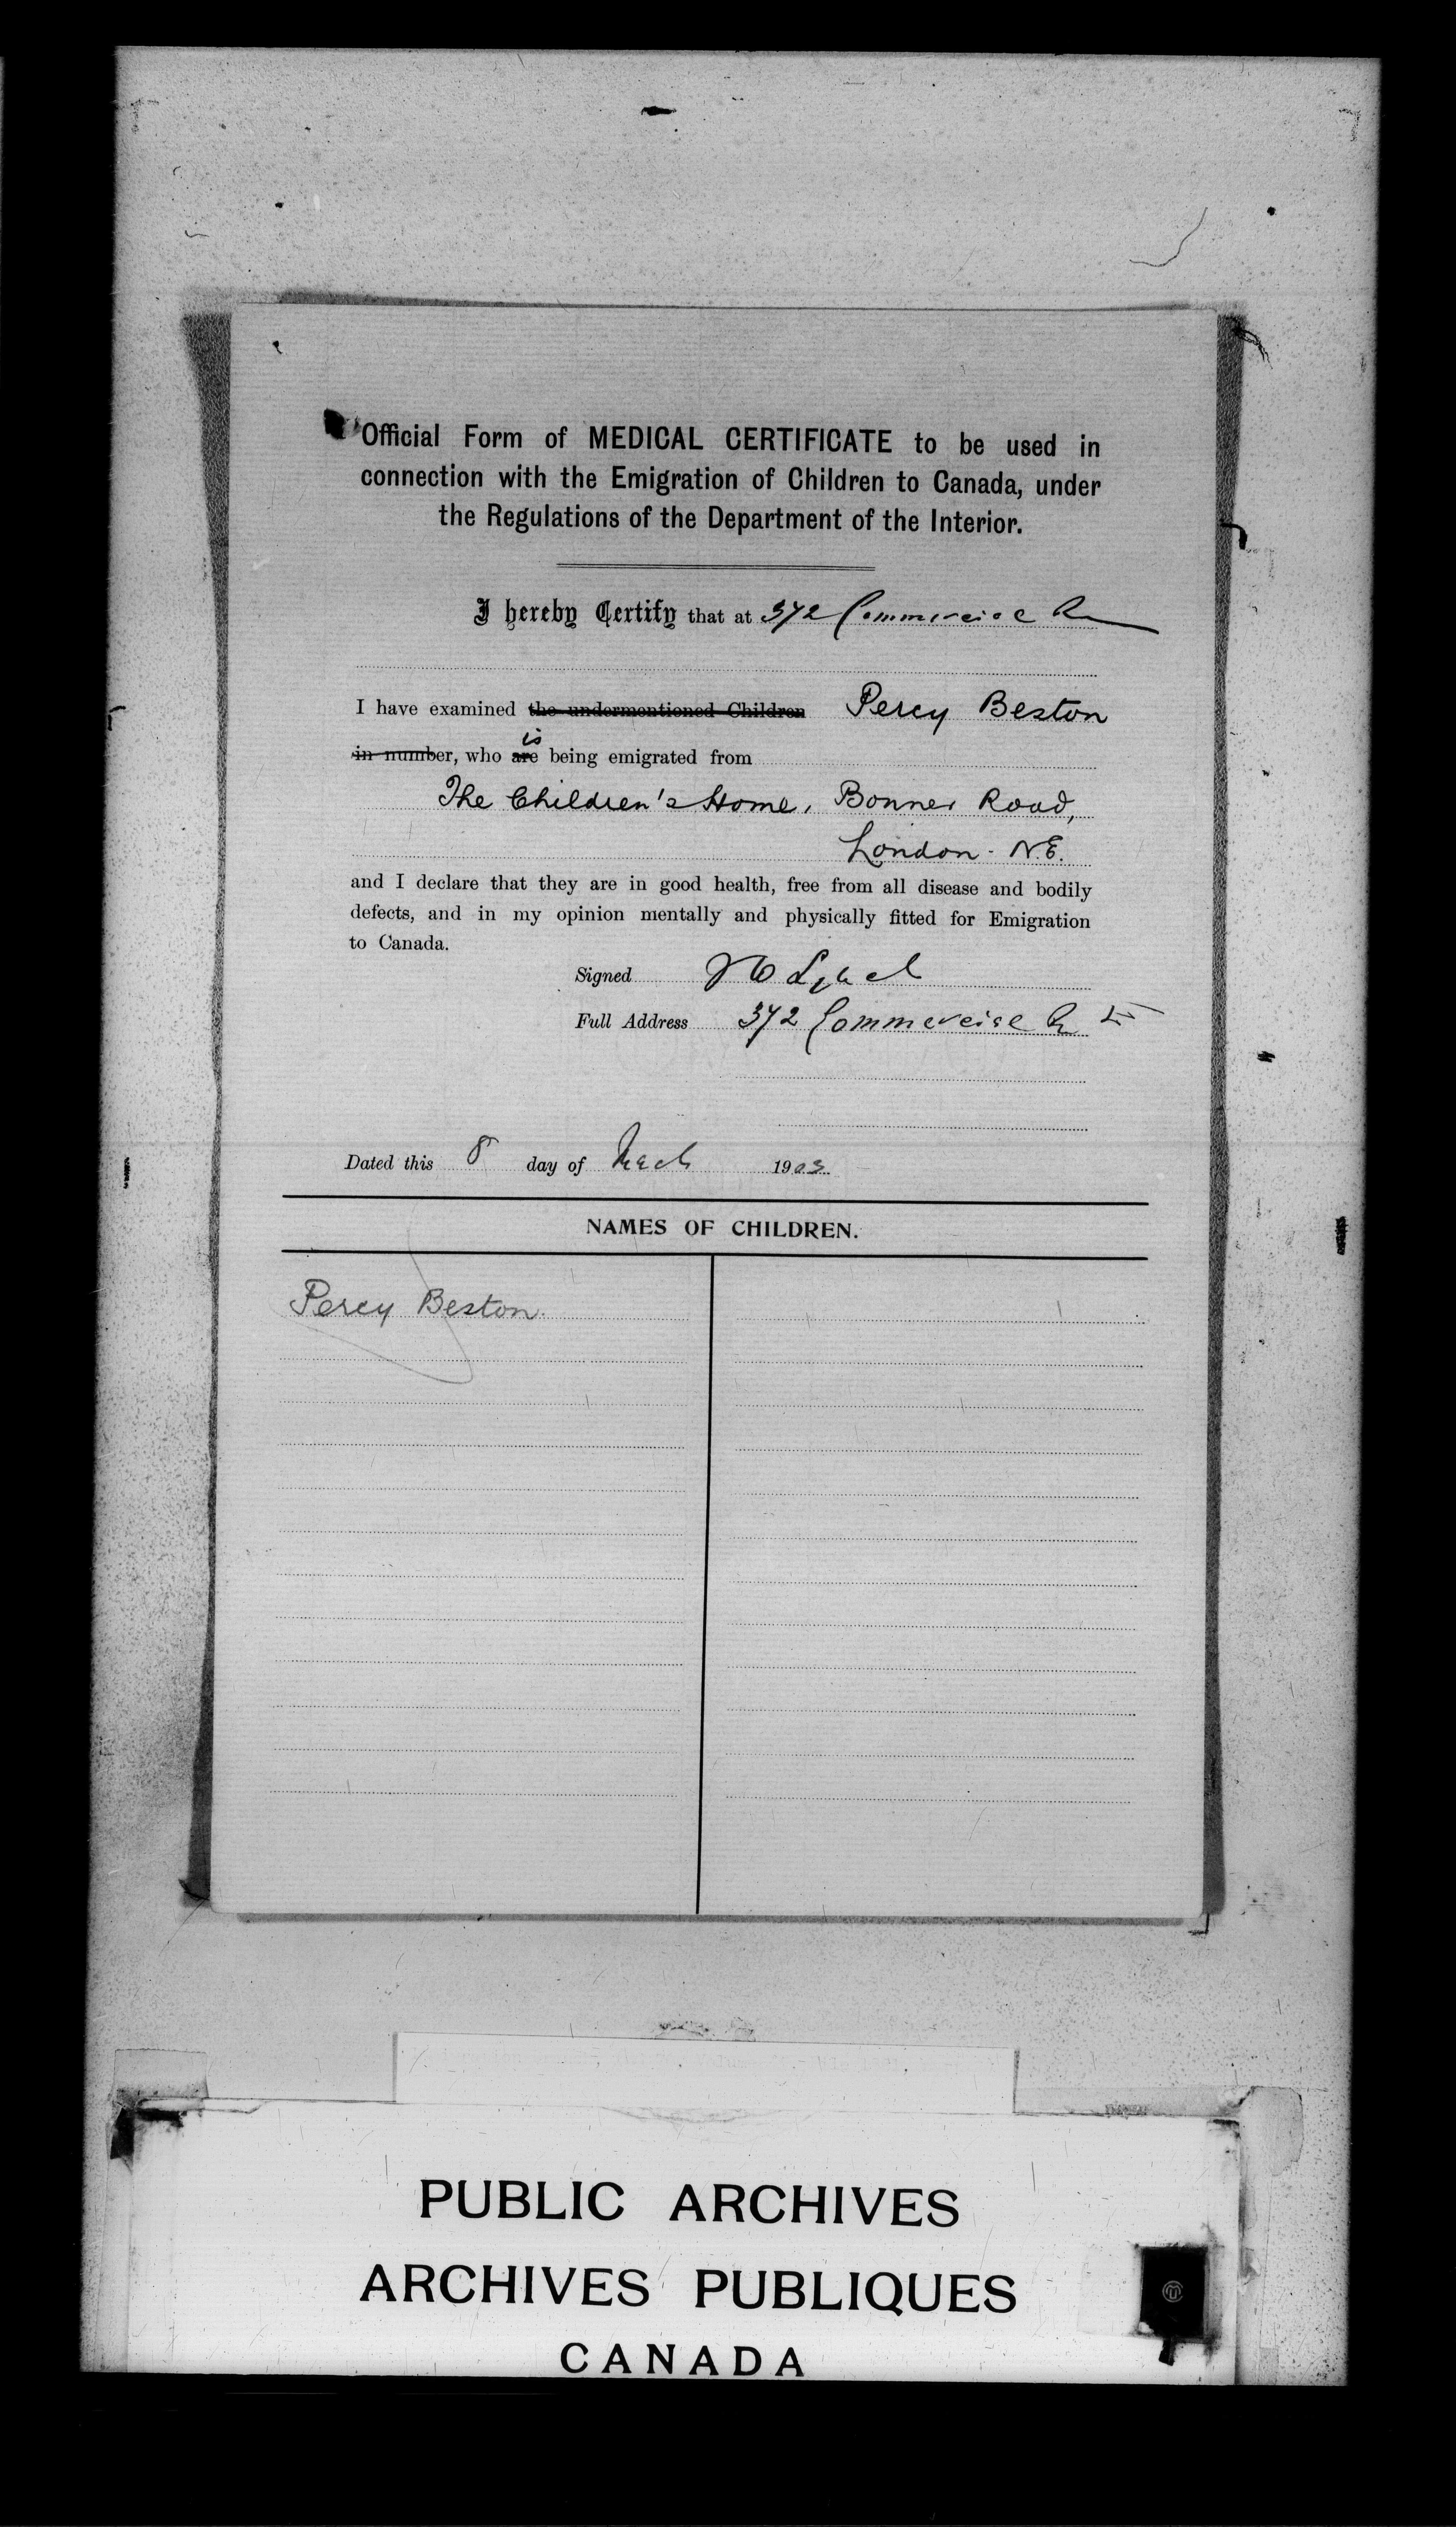 Official Form of MEDICAL CERTIFICATE to be used in
connection with the Emigration of Children to Canada, under
the Regulations of the Department of the Interior.
I hereby Certify that at 372 Commercial Rd
I have examined the undermentioned Children Percy Beston
in number, who are is being emigrated from
The Children's Home, Bonner Road,
London - N.E.
and I declare that they are in good health, free from all disease and bodily
defects, and in my opinion mentally and physically fitted for Emigration
to Canada.
Signed
Full Address 372 Commercial Rd E
Dated this 8 day of March 1903
NAMES OF CHILDREN.
Percy Beston.
PUBLIC ARCHIVES
ARCHIVES PUBLIQUES
CANADA